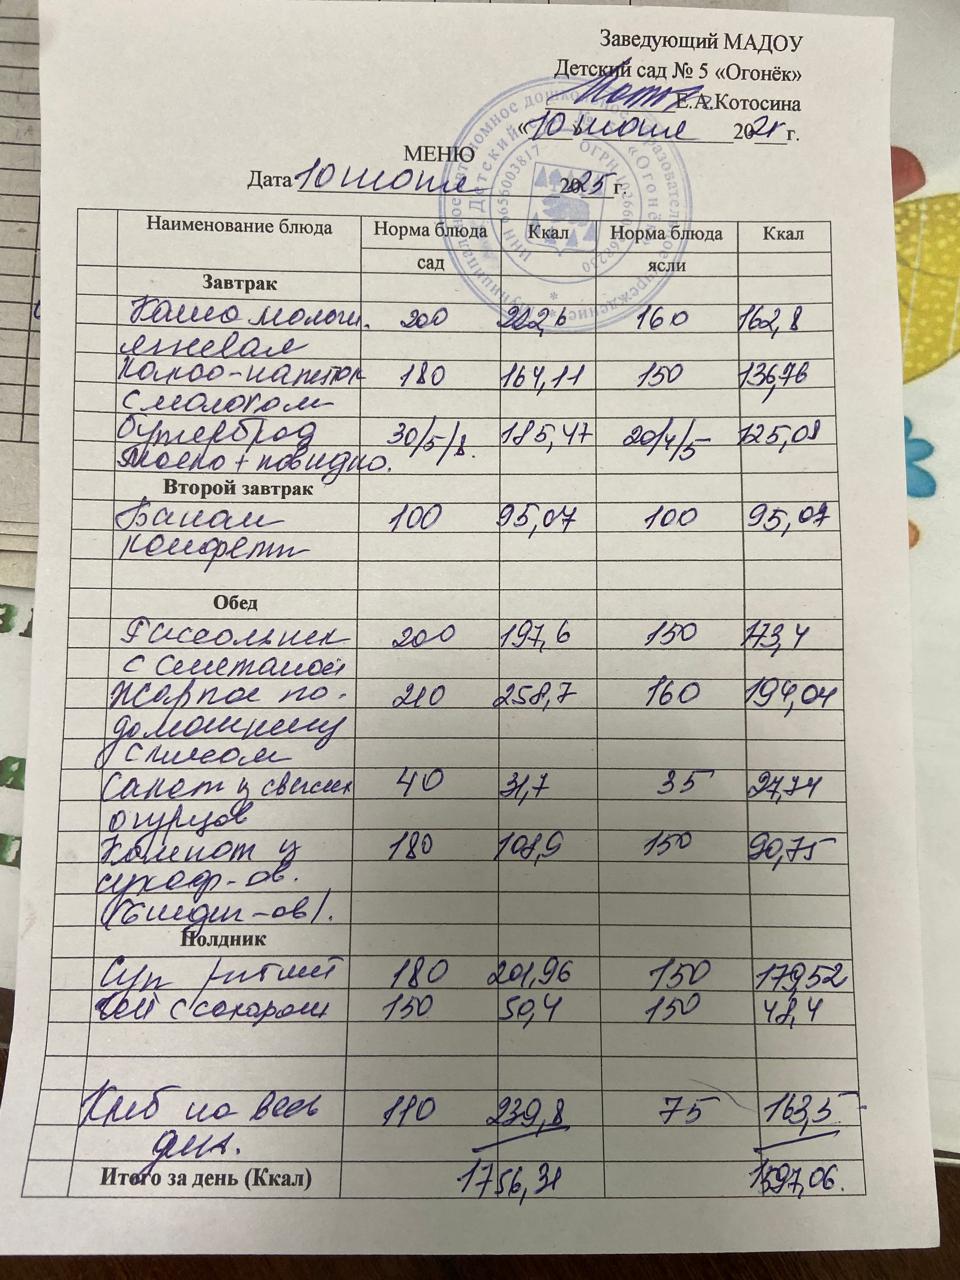 Заведующий МАДОУ
Детский сад № 5 «Огонёк»
Е.А.Котосина
«10» июня 2025г.
МЕНЮ
Дата 10 июня 2025 г.
Наименование блюда Норма блюда Ккал Норма блюда Ккал
сад ясли
Завтрак
Каша молочн. 200 222,6 160 162,8
ячневая
Какао-напиток 180 164,11 150 136,76
с молоком
Бутерброд 30/5/8. 185,47 20/4/5 125,08
масло + повидло.
Второй завтрак
Банан 100 95,07 100 95,07
конфеты
Обед
Рассольник 200 197,6 150 173,4
с сметаной
Жаркое по- 210 258,7 160 194,04
домашнему
с мясом
Салат из свежих 40 31,7 35 27,74
огурцов
Компот из 180 108,9 150 90,75
сухофр-ов.
Полдник
Суп 180 201,96 150 179,52
Чай с сахаром 150 50,4 150 48,4
Хлеб на весь 110 239,8 75 163,5
день.
Итого за день (Ккал) 1756,31 1597,06.